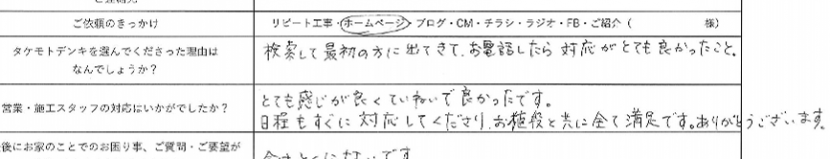 ご依頼のきっかけ
リピート工事・ホームページ・ブログ・CM・チラシ・ラジオ・FB・ご紹介（　　　　様）
タケモトデンキを選んでくださった理由は
なんでしょうか？
検索して最初の方に出てきて、お電話したら 対応がとても良かったこと。
営業・施工スタッフの対応はいかがでしたか？
とても感じが良くていねいで良かったです。
日程もすぐに対応してくださり、お値段と共に全て満足です。ありがとうございます。
後にお家のことでのお困り事、ご質問・ご要望が
今はとくにないです